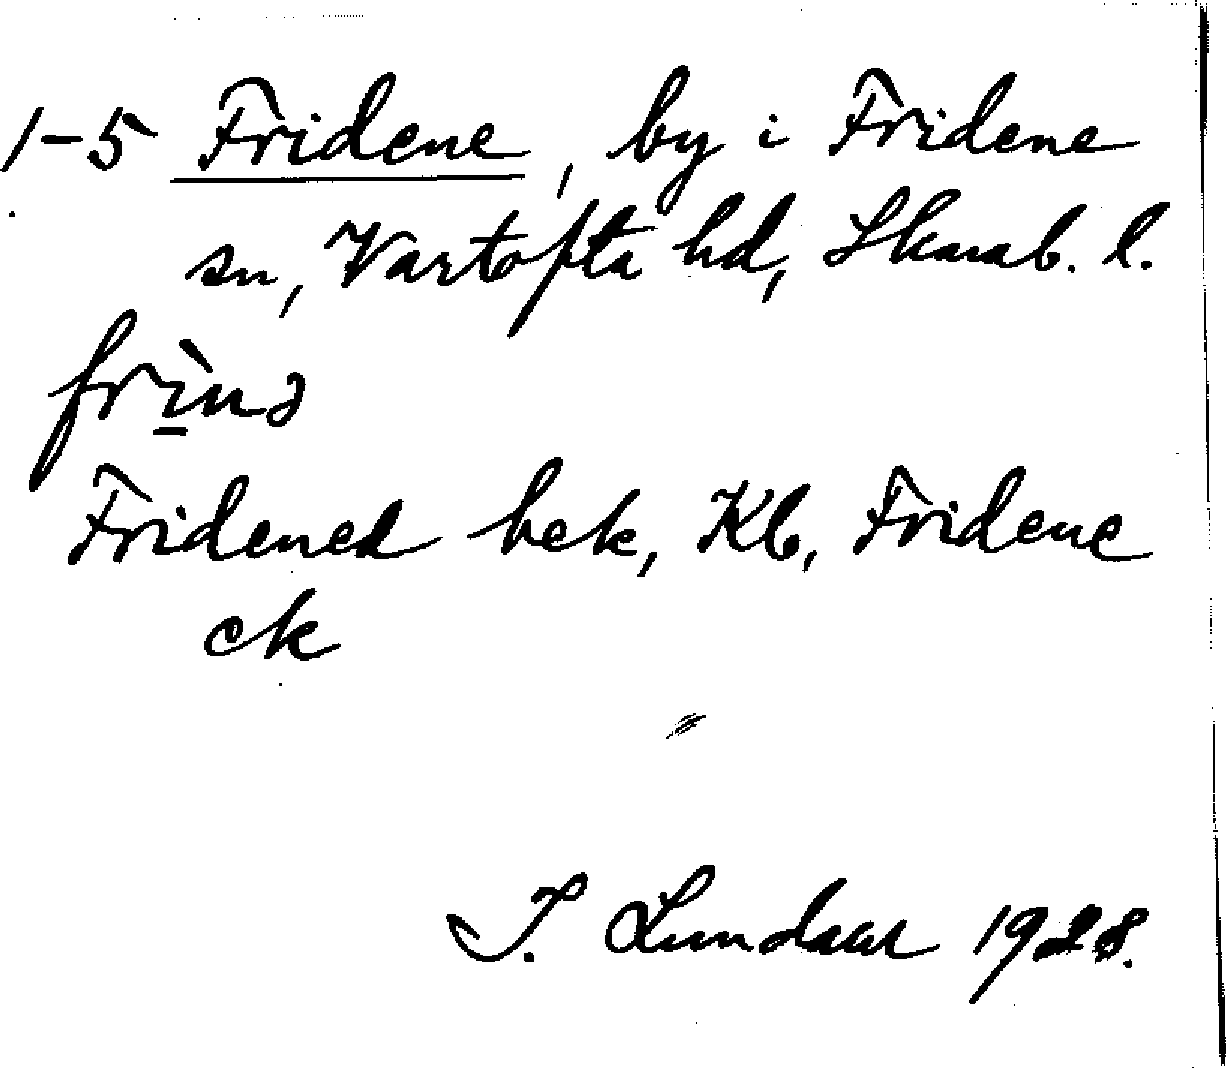 1-5 Fridene, by i Fridene
sn, Vartofta hd, Skarab. l.
frìnə
Fridened bek, Kb, Fridene
ek
I. Lundaar 1928.